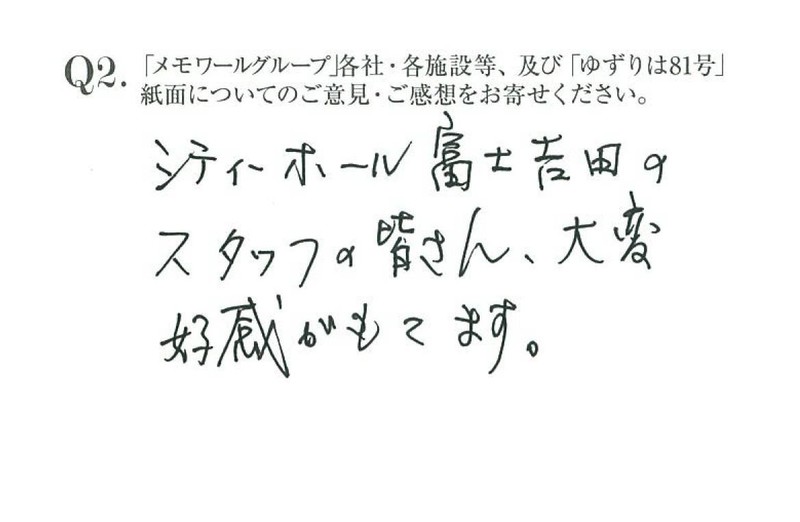 Q2. 「メモワールグループ」各社・各施設等、及び「ゆずりは81号」
紙面についてのご意見・ご感想をお寄せください。
シティーホール富士吉田の
スタッフの皆さん、大変
好感がもてます。